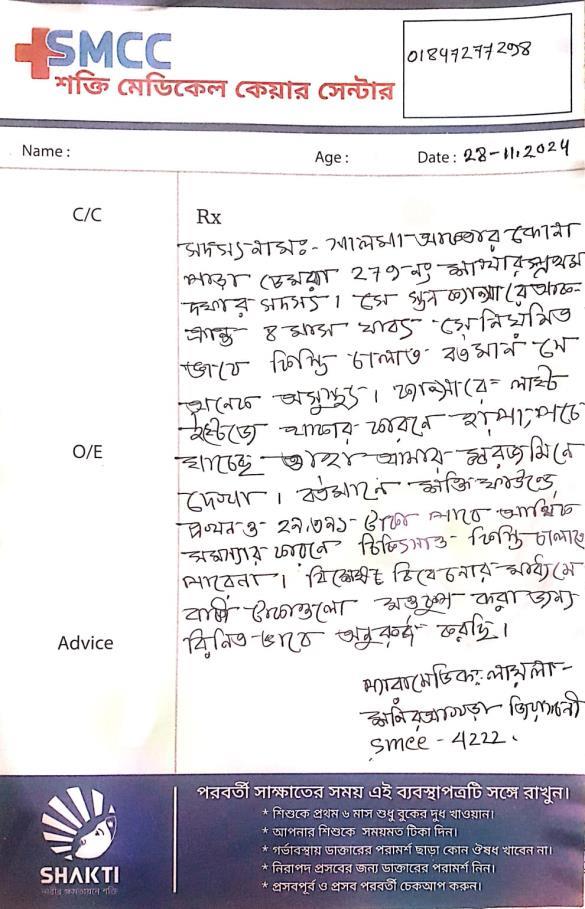 SMCC
শক্তি মেডিকেল কেয়ার সেন্টার
01847277298
Name :
Age :
Date : 28-11.2024
C/C
Rx
সদস্য নামঃ- সালমা আক্তার কোনা
পাড়া ডেমরা 279 নং শাখার প্রথম
দফার সদস্য। সে স্তন ক্যান্সারে আক্-
ক্রান্ত ৪ মাস যাবৎ সে নিয়মিত
ভাবে কিস্তি চালাত বর্তমান সে
অনেক অসুস্থ্য। ক্যান্সারে লাস্ট
থাকার কারনে
O/E
যাচ্ছে তাহা আমার স্বরজমিনে
দেখা। বর্তমানে শক্তি ফাউন্ডে
এখন ও ২৯,৩৯১- টাকা পাবে আর্থিক
সমস্যার কারনে চিকিৎসাও কিস্তি চালাতে
পারেনা। বিশেষ বিবেচনার মাধ্যমে
বাকী টাকাগুলো মওকুফ করা জন্য
বিনিত ভাবে অনুরুধ করছি।
Advice
প্যারামেডিক: লায়লা-
শনিরআখড়া
SMCC - 4222.
পরবর্তী সাক্ষাতের সময় এই ব্যবস্থাপত্রটি সঙ্গে রাখুন।
* শিশুকে প্রথম ৬ মাস শুধু বুকের দুধ খাওয়ান।
* আপনার শিশুকে সময়মত টিকা দিন।
* গর্ভাবস্থায় ডাক্তারের পরামর্শ ছাড়া কোন ঔষধ খাবেন না।
* নিরাপদ প্রসবের জন্য ডাক্তারের পরামর্শ নিন।
* প্রসবপূর্ব ও প্রসব পরবর্তী চেকআপ করুন।
SHAKTI
নারীর ক্ষমতায়নে শক্তি